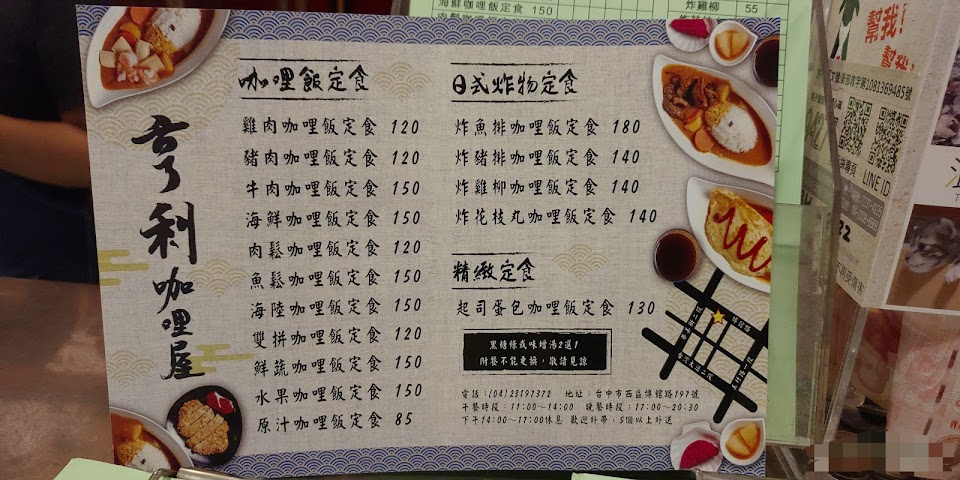 海鮮咖哩飯定食 150
炸雞柳 55
亨利咖哩屋
咖哩飯定食
雞肉咖哩飯定食 120
豬肉咖哩飯定食 120
牛肉咖哩飯定食 150
海鮮咖哩飯定食 150
肉鬆咖哩飯定食 120
魚鬆咖哩飯定食 150
海陸咖哩飯定食 150
雙拼咖哩飯定食 120
鮮蔬咖哩飯定食 150
水果咖哩飯定食 150
原汁咖哩飯定食 85
日式炸物定食
炸魚排咖哩飯定食 180
炸豬排咖哩飯定食 140
炸雞柳咖哩飯定食 140
炸花枝丸咖哩飯定食 140
精緻定食
起司蛋包咖哩飯定食 130
黑糖條或味增湯2選1
附餐不能更換，敬請見諒
電話：(04)23197372 地址：台中市西區博館路197號
午餐時段：11:00～14:00 晚餐時段：17:00～20:30
下午14:00～17:00休息 歡迎外帶，5個以上外送
幫我！
幫我！
字第1081369485號
LINE ID